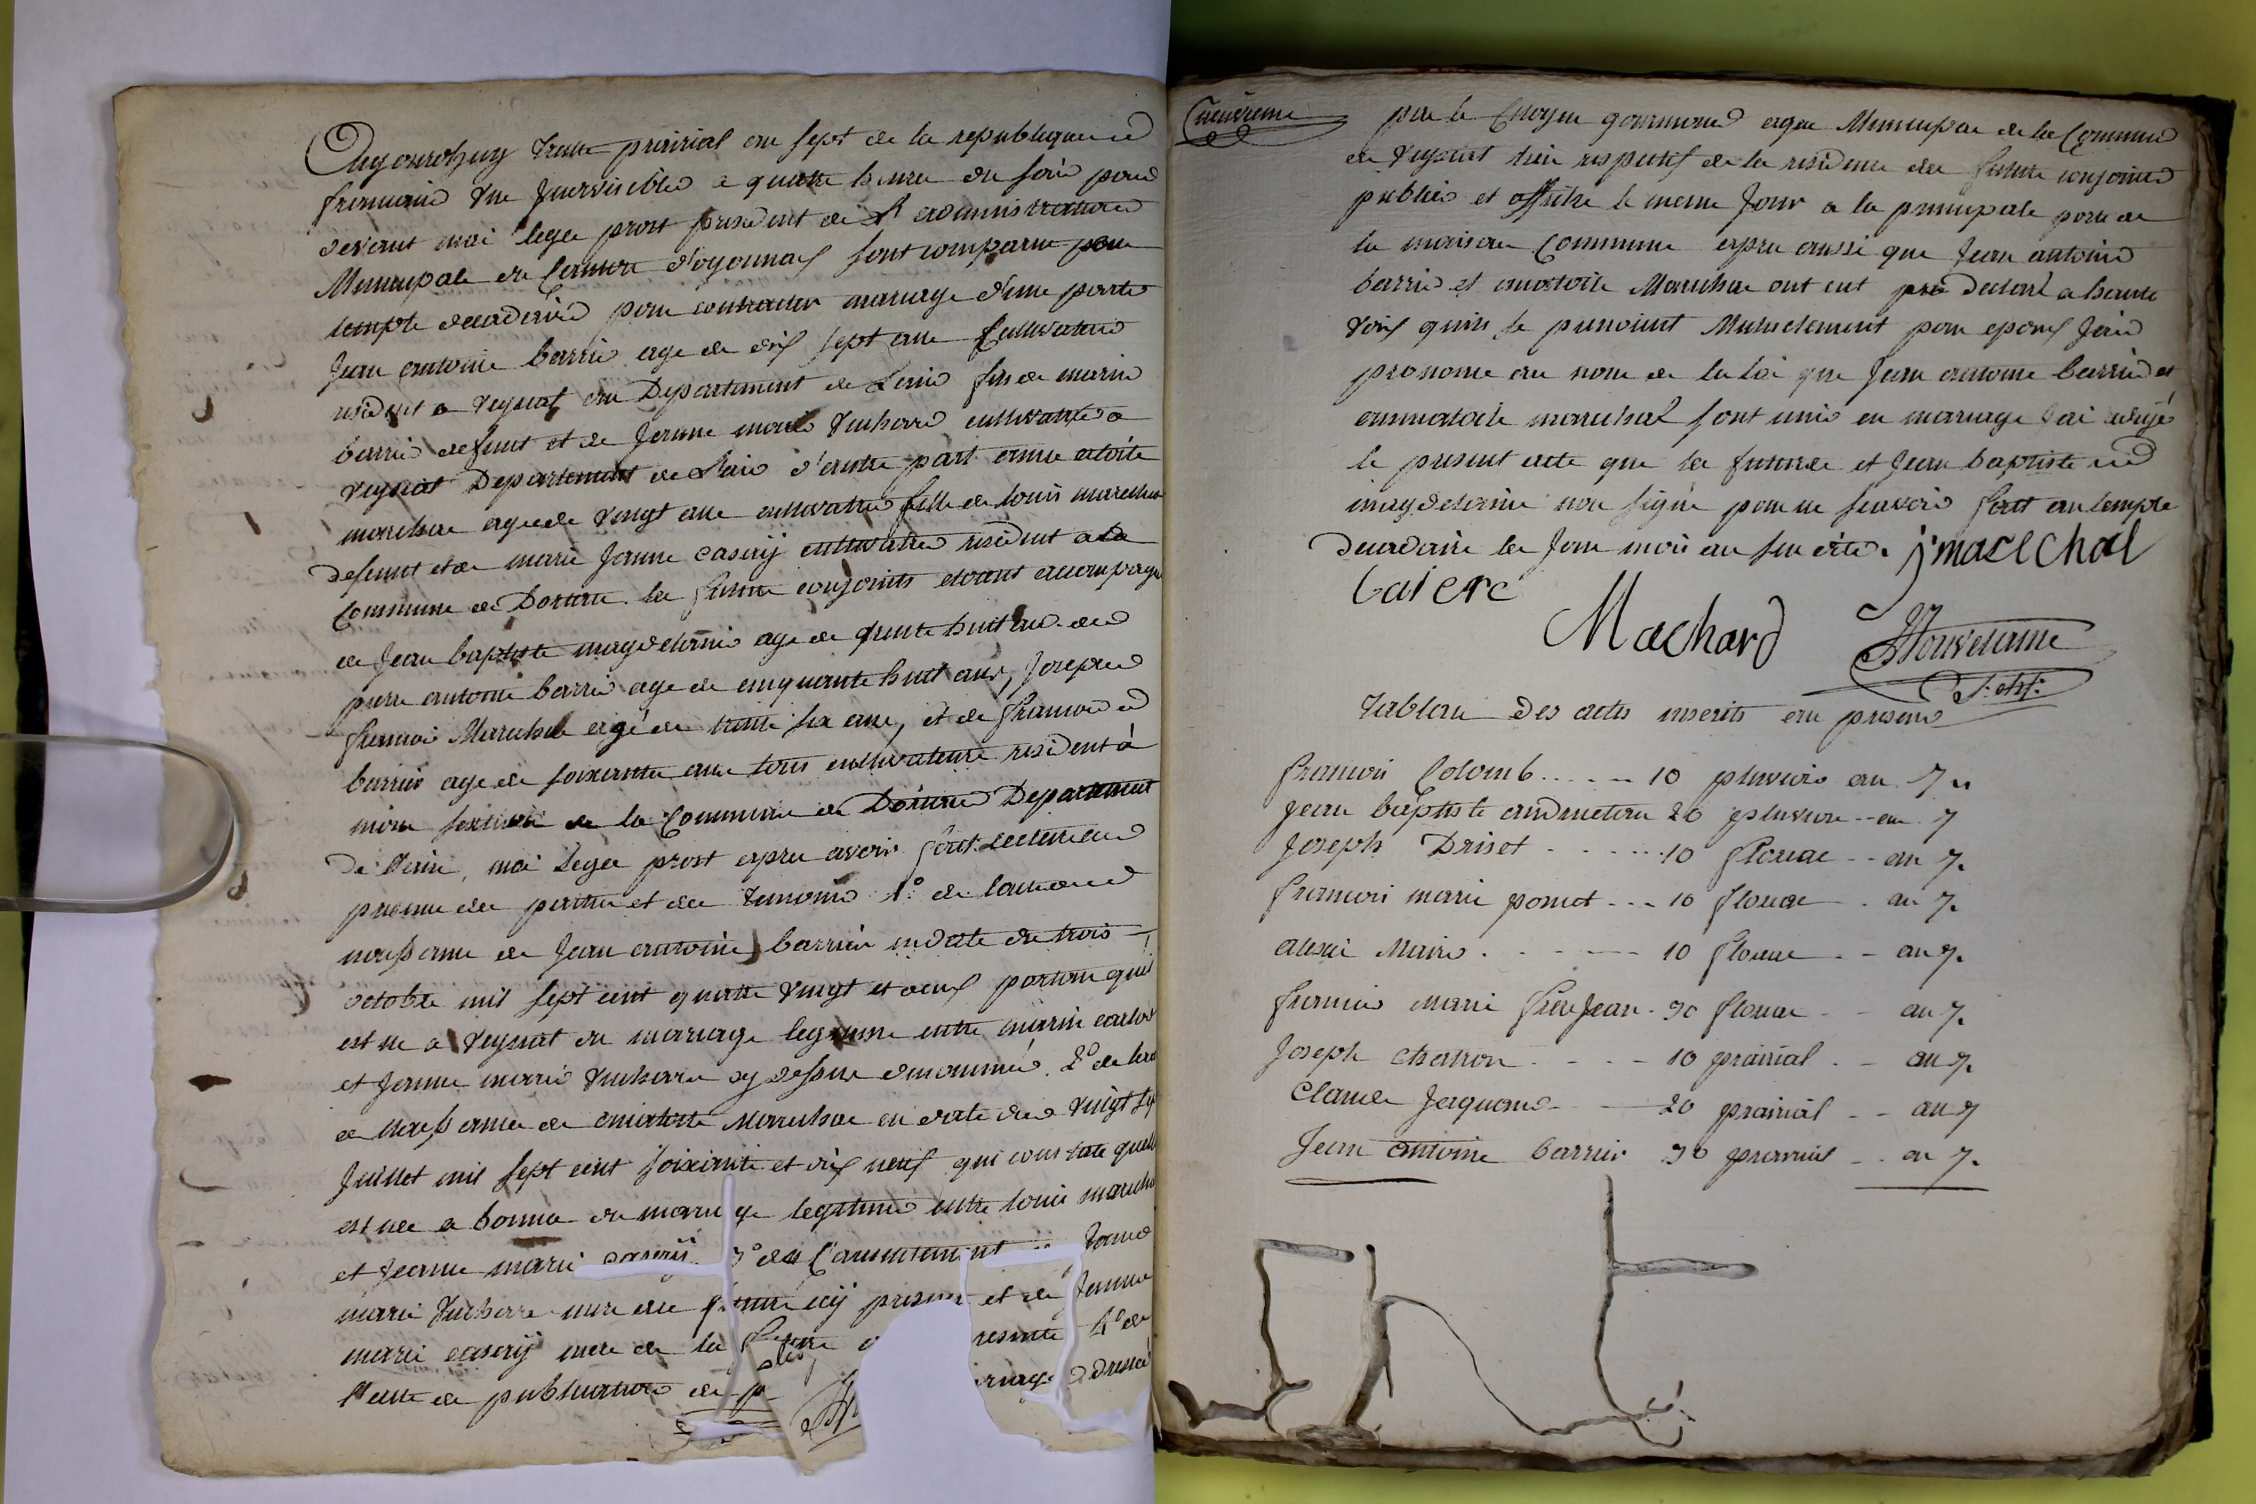 Aujourdhuy trente prairial an sept de la republique
francaise une Indivisible a quatre heure du soir pard
devant moi leger prost president de l'administration
Municipale du Canton d'oyonnax sont comparu
temple decadaire pour contracter mariage d'une parte
Jean antoine barrie age de dix sept ans Cultivateur
resident a veyziat Departement de Lain fils de marin
barrie defunt et de Jeanne marie vuchard cultivatrice a
veyziat Departement de Lain d'autre part anne
marechal agee de vingt ans cultivatrice fille de louis marechal
defunt et de marie Jeanne cultivatrice resident a la
Commune de Dortan les futurs conjoints etant accompagne
de Jean baptiste magdelaine age de trente huit ans de
pierre antoine barrie age de cinquante huit ans, Joseph
francoi Marechal agé de trente six ans, et de francoi
barrie age de soixante ans tous cultivateurs resident à
section de la Commune de Departement
de l'ain, moi leger prost apres avoir fait lecture en
presence des parties et des temoins 1° de lacte de
naissance de Jean antoine barrier en date du trois
octobre mil sept cent quatre vingt et deux portant quil
est ne a veyziat du mariage legitime entre marin
et Jeanne marie vuchard cy dessus denommé. 2° de
de naissance de Marechal en date du vingt
Juillet mil sept cent soixante et dix neuf qui constate quell
est nee a du mariage legitime entre louis marechal
et Jeanne marie 3° de
marie mere du futur icy present et de Jeanne
marie mere de la future 4° de
l'acte de publication de dressé
par le Citoyen gourmand agent Municipal de la Commune
de veyziat lieu respectif de la residence des futurs conjoints
publié et affiche le meme Jour a la principale porte de
la maison Commune apres aussi que Jean antoine
barrie et Marechal ont eut declaré a haute
voix quils se prenoient Mutuelement pour epoux J'ai
prononce au nom de la loi que Jean antoine barrie et
marechal sont unis en mariage J'ai redigé
le present acte que la future et Jean baptiste
magdelaine non signé pour ne scavoir fait au temple
decadaire les Jour mois an sus dits. j marechal
Machard
Tableau des actes inserits au present
francois Colomb..... 10 pluviose an 7
Jean baptiste 20 pluviose an 7
Joseph Driset 10 floreal an 7.
francois marie ponut 10 floreal an 7.
alexis Maire 10 floreal an 7.
francois marie frereJean 30 floreal an 7.
Joseph charron 10 prairial an 7.
Claude Jaquand 20 prairial an 7
Jean antoine barrier 30 prairial an 7.